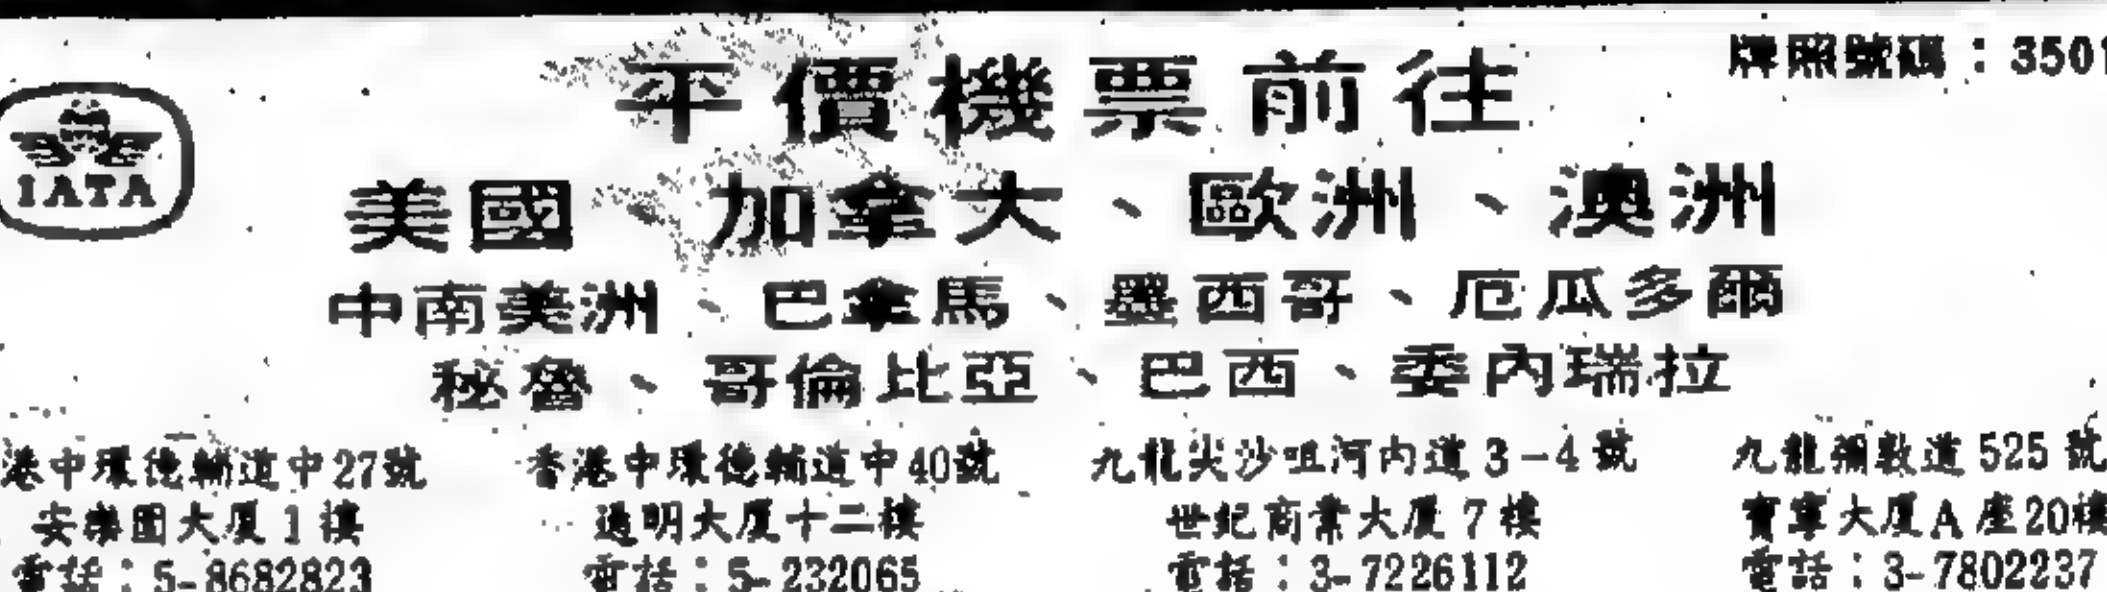 牌照號碼：3501
平價機票前往
IATA
美國、加拿大、歐洲、澳洲
中南美洲、巴拿馬、墨西哥、厄瓜多爾
秘魯、哥倫比亞、巴西、委內瑞拉
港中環德輔道中27號
安樂園大厦1樓
電話：5-8682823
香港中環德輔道中40號
明大厦十二樓
電話：5-232065
九龍尖沙咀河内道3-4號
世紀商業大厦7樓
電話：3-7226112
九龍彌敦道525號
寶寧大厦A座20樓
電話：3-7802237